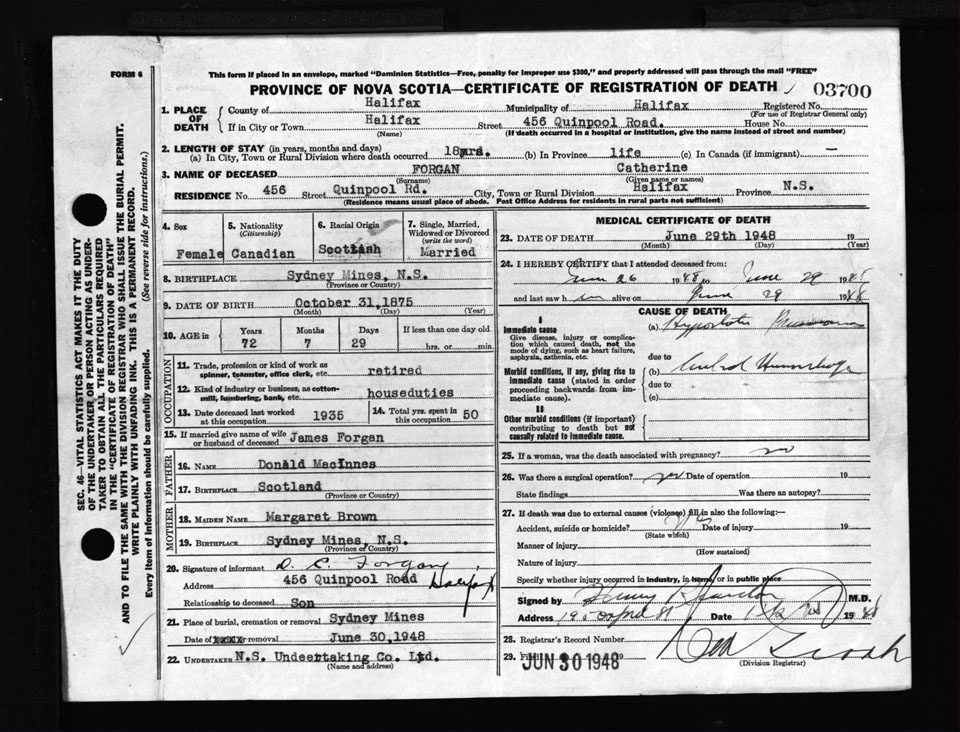 FORM 6
This form if placed in an envelope, marked "Dominion Statistics—Free, penalty for improper use $300," and properly addressed will pass through the mail "FREE"
PROVINCE OF NOVA SCOTIA—CERTIFICATE OF REGISTRATION OF DEATH 03700
1. PLACE OF DEATH
County of Halifax Municipality of Halifax Registered No.
(For use of Registrar General only)
If in City or Town Halifax Street 456 Quinpool Road. House No.
(Name) (If death occurred in a hospital or institution, give the name instead of street and number)
2. LENGTH OF STAY (in years, months and days)
(a) In City, Town or Rural Division where death occurred 18yrs. (b) In Province life (c) In Canada (if immigrant) —
3. NAME OF DECEASED FORGAN Catherine
(Surname) (Given name or names)
RESIDENCE No. 456 Street Quinpool Rd. City, Town or Rural Division Halifax Province N.S.
(Residence means usual place of abode. Post Office Address for residents in rural parts not sufficient)
SEC. 46—VITAL STATISTICS ACT MAKES IT THE DUTY
OF THE UNDERTAKER OR PERSON ACTING AS UNDER-
TAKER TO OBTAIN ALL THE PARTICULARS REQUIRED
IN THE "CERTIFICATE OF REGISTRATION OF DEATH"
AND TO FILE THE SAME WITH THE DIVISION REGISTRAR WHO SHALL ISSUE THE BURIAL PERMIT.
WRITE PLAINLY WITH UNFADING INK. THIS IS A PERMANENT RECORD.
Every item of information should be carefully supplied. (See reverse side for instructions.)
4. Sex
Female
5. Nationality
(Citizenship)
Canadian
6. Racial Origin
Scottish
7. Single, Married,
Widowed or Divorced
(write the word)
Married
8. BIRTHPLACE Sydney Mines, N.S.
(Province or Country)
9. DATE OF BIRTH October 31,1875
(Month) (Day) (Year)
10. AGE in Years Months Days If less than one day old
72 7 29 hrs. or min
OCCUPATION
11. Trade, profession or kind of work as
spinner, teamster, office clerk, etc. retired
12. Kind of industry or business, as cotton-
mill, lumbering, bank, etc. houseduties
13. Date deceased last worked
at this occupation 1935
14. Total yrs. spent in
this occupation 50
15. If married give name of wife
or husband of deceased James Forgan
FATHER
16. NAME Donald MacInnes
17. BIRTHPLACE Scotland
(Province or Country)
MOTHER
18. MAIDEN NAME Margaret Brown
19. BIRTHPLACE Sydney Mines, N.S.
(Province of Country)
20. Signature of informant D. C. Forgan
Address 456 Quinpool Road Halifax
Relationship to deceased Son
21. Place of burial, cremation or removal Sydney Mines
Date of or removal June 30,1948
22. UNDERTAKER N.S. Undeertaking Co. Ltd.
(Name and address)
MEDICAL CERTIFICATE OF DEATH
23. DATE OF DEATH June 29th 1948 19
(Month) (Day) (Year)
24. I HEREBY CERTIFY that I attended deceased from:
June 26 1948 to June 29 1948
and last saw h alive on June 29 1948
CAUSE OF DEATH
I
Immediate cause
Give disease, injury or complica-
tion which caused death, not the
mode of dying, such as heart failure,
asphyxia, asthenia, etc.
(a) Hypostatic Pneumonia
due to
Morbid conditions, if any, giving rise to
immediate cause (stated in order
proceeding backwards from im-
mediate cause).
(b) Hemorrhage
due to
(c)
II
Other morbid conditions (if important)
contributing to death but not
causally related to immediate cause.
25. If a woman, was the death associated with pregnancy? no
26. Was there a surgical operation? no Date of operation 19
State findings Was there an autopsy?
27. If death was due to external causes (violence) fill in also the following:—
Accident, suicide or homicide? Date of injury 19
(State which)
Manner of injury
(How sustained)
Nature of injury
Specify whether injury occurred in industry, in home, or in public place
Signed by Henry M.D.
Address 195 Date 1948
28. Registrar's Record Number
29. Filed JUN 30 1948
(Division Registrar)